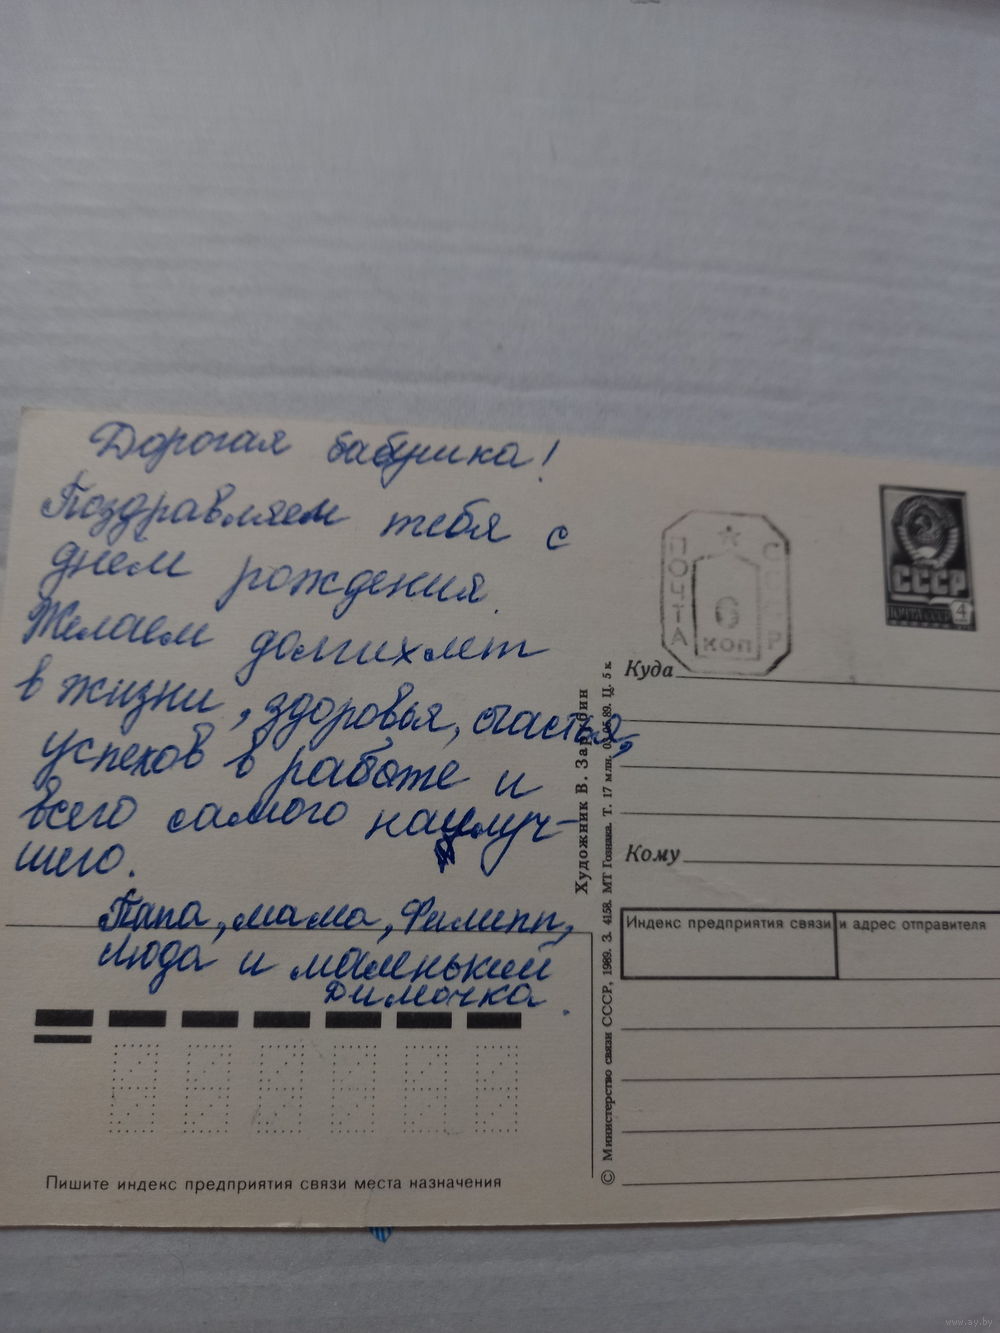 Дорогая бабушка!
Поздравляем тебя с
днём рождения.
Желаем долгих лет
в жизни, здоровья, счастья,
успехов в работе и
всего самого наилуч-
шего.
Папа, мама, Филипп,
Люда и маленький
Димочка.
Пишите индекс предприятия связи места назначения
Художник В. Зарубин
© Министерство связи СССР, 1989. З. 4158. МТ Гознака. Т. 17 млн. 05.89. Ц. 5 к.
ПОЧТА
СССР
6
КОП
СССР
ПОЧТА СССР 4
Куда
Кому
Индекс предприятия связи и адрес отправителя
www.ay.by